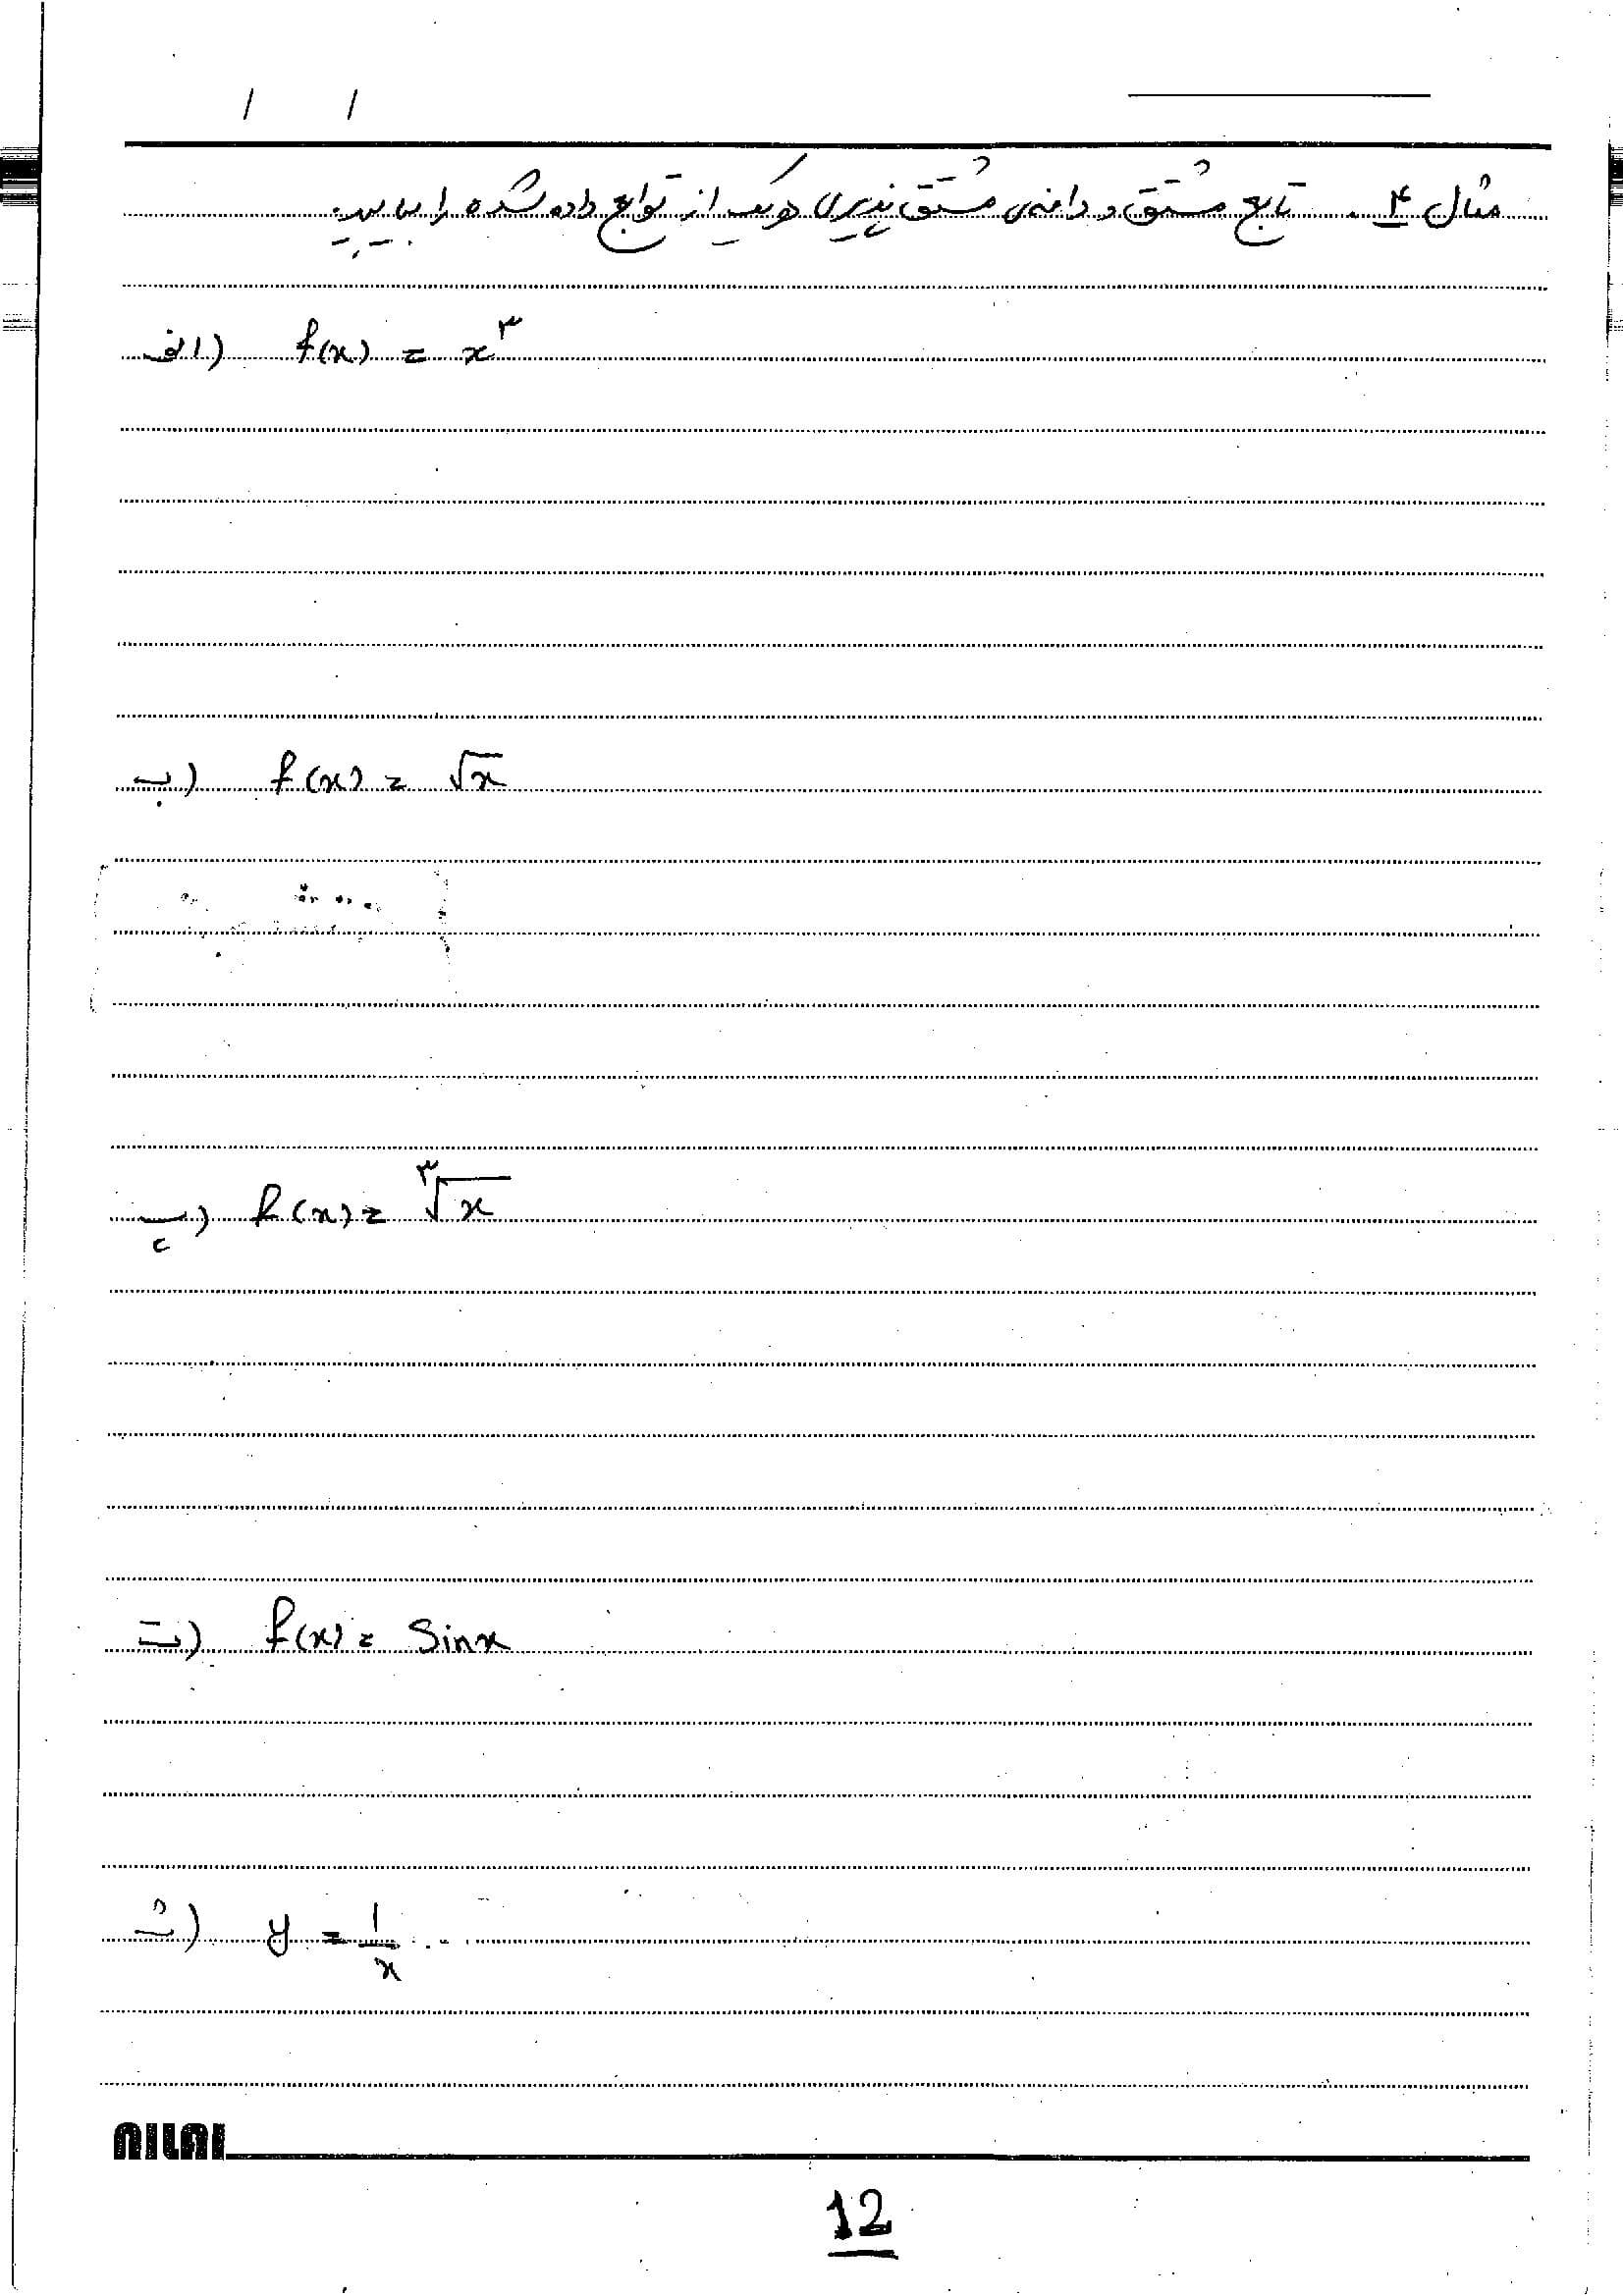 / /
مثال ۴. تابع مشتق و دامنه‌ی مشتق‌پذیری هر یک از توابع داده شده را بیابید.
الف) f(x) = x^۳
ب) f(x) = √x
پ) f(x) = ۳√x
ت) f(x) = Sinx
ث) y = 1/x
NILAI
12